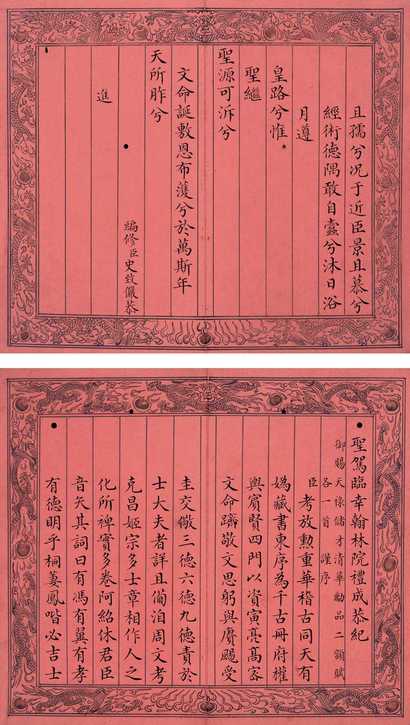 且孺兮况于近臣景且慕兮
經術德隅敢自蠹兮沐日浴
月遵
皇路兮惟
聖繼
聖源可泝兮
文命誕敷恩布濩兮於萬斯年
天所胙兮
進
編修臣史致儼恭
聖駕臨幸翰林院禮成恭紀
御賜天祿儲才清華勵品二額賦
各一首謹序
臣考放勲重華稽古同天有
媯藏書東序為千古冊府權
輿賓賢四門以資寅亮髙宻
文命躋敬文思躬與賡颺受
圭交儆三德六德九德責於
士大夫者詳且僃洎周文考
克昌姬宗多士章相作人之
化所裨實多卷阿紹休君臣
音矢其詞曰有馮有翼有孝
有德明乎桐萋鳳喈必吉士